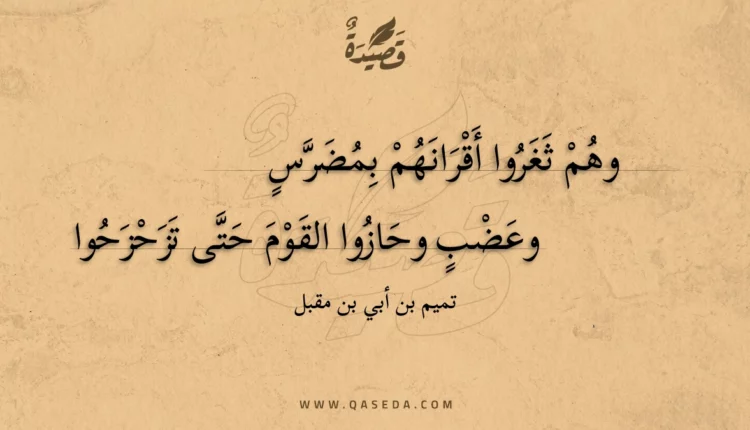 قَصِيْدَةٌ
وهُمْ ثَغَرُوا أَقْرَانَهُمْ بِمُضَرَّسٍ
وعَضْبٍ وحَازُوا القَوْمَ حَتَّى تَزَحْزَحُوا
تميم بن أبي بن مقبل
WWW.QASEDA.COM